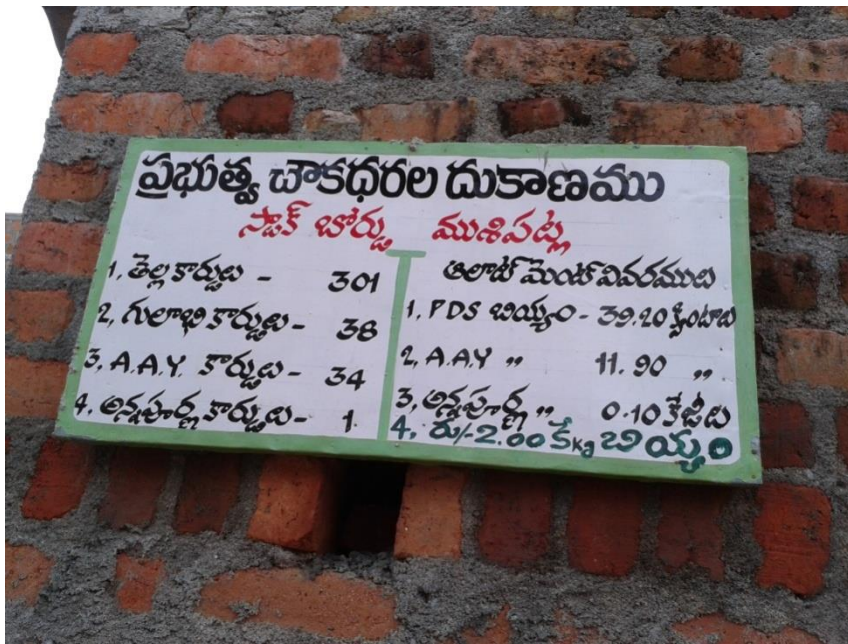 ప్రభుత్వ చౌకధరల దుకాణము
స్టాక్ బోర్డు ముశిపట్ల
1, తెల్ల కార్డులు - 301
2, గులాభి కార్డులు - 38
3, A.A.Y. కార్డులు - 34
4, అన్నపూర్ణ కార్డులు - 1.
ఆలాట్ మెంట్ వివరములు
1, PDS బియ్యం - 39.20 క్వింటాలు
2, A.A.Y „ 11.90 „
3, అన్నపూర్ణ „ 0.10 కేజీలు
4, రు/-2.00 కే kg బియ్యం